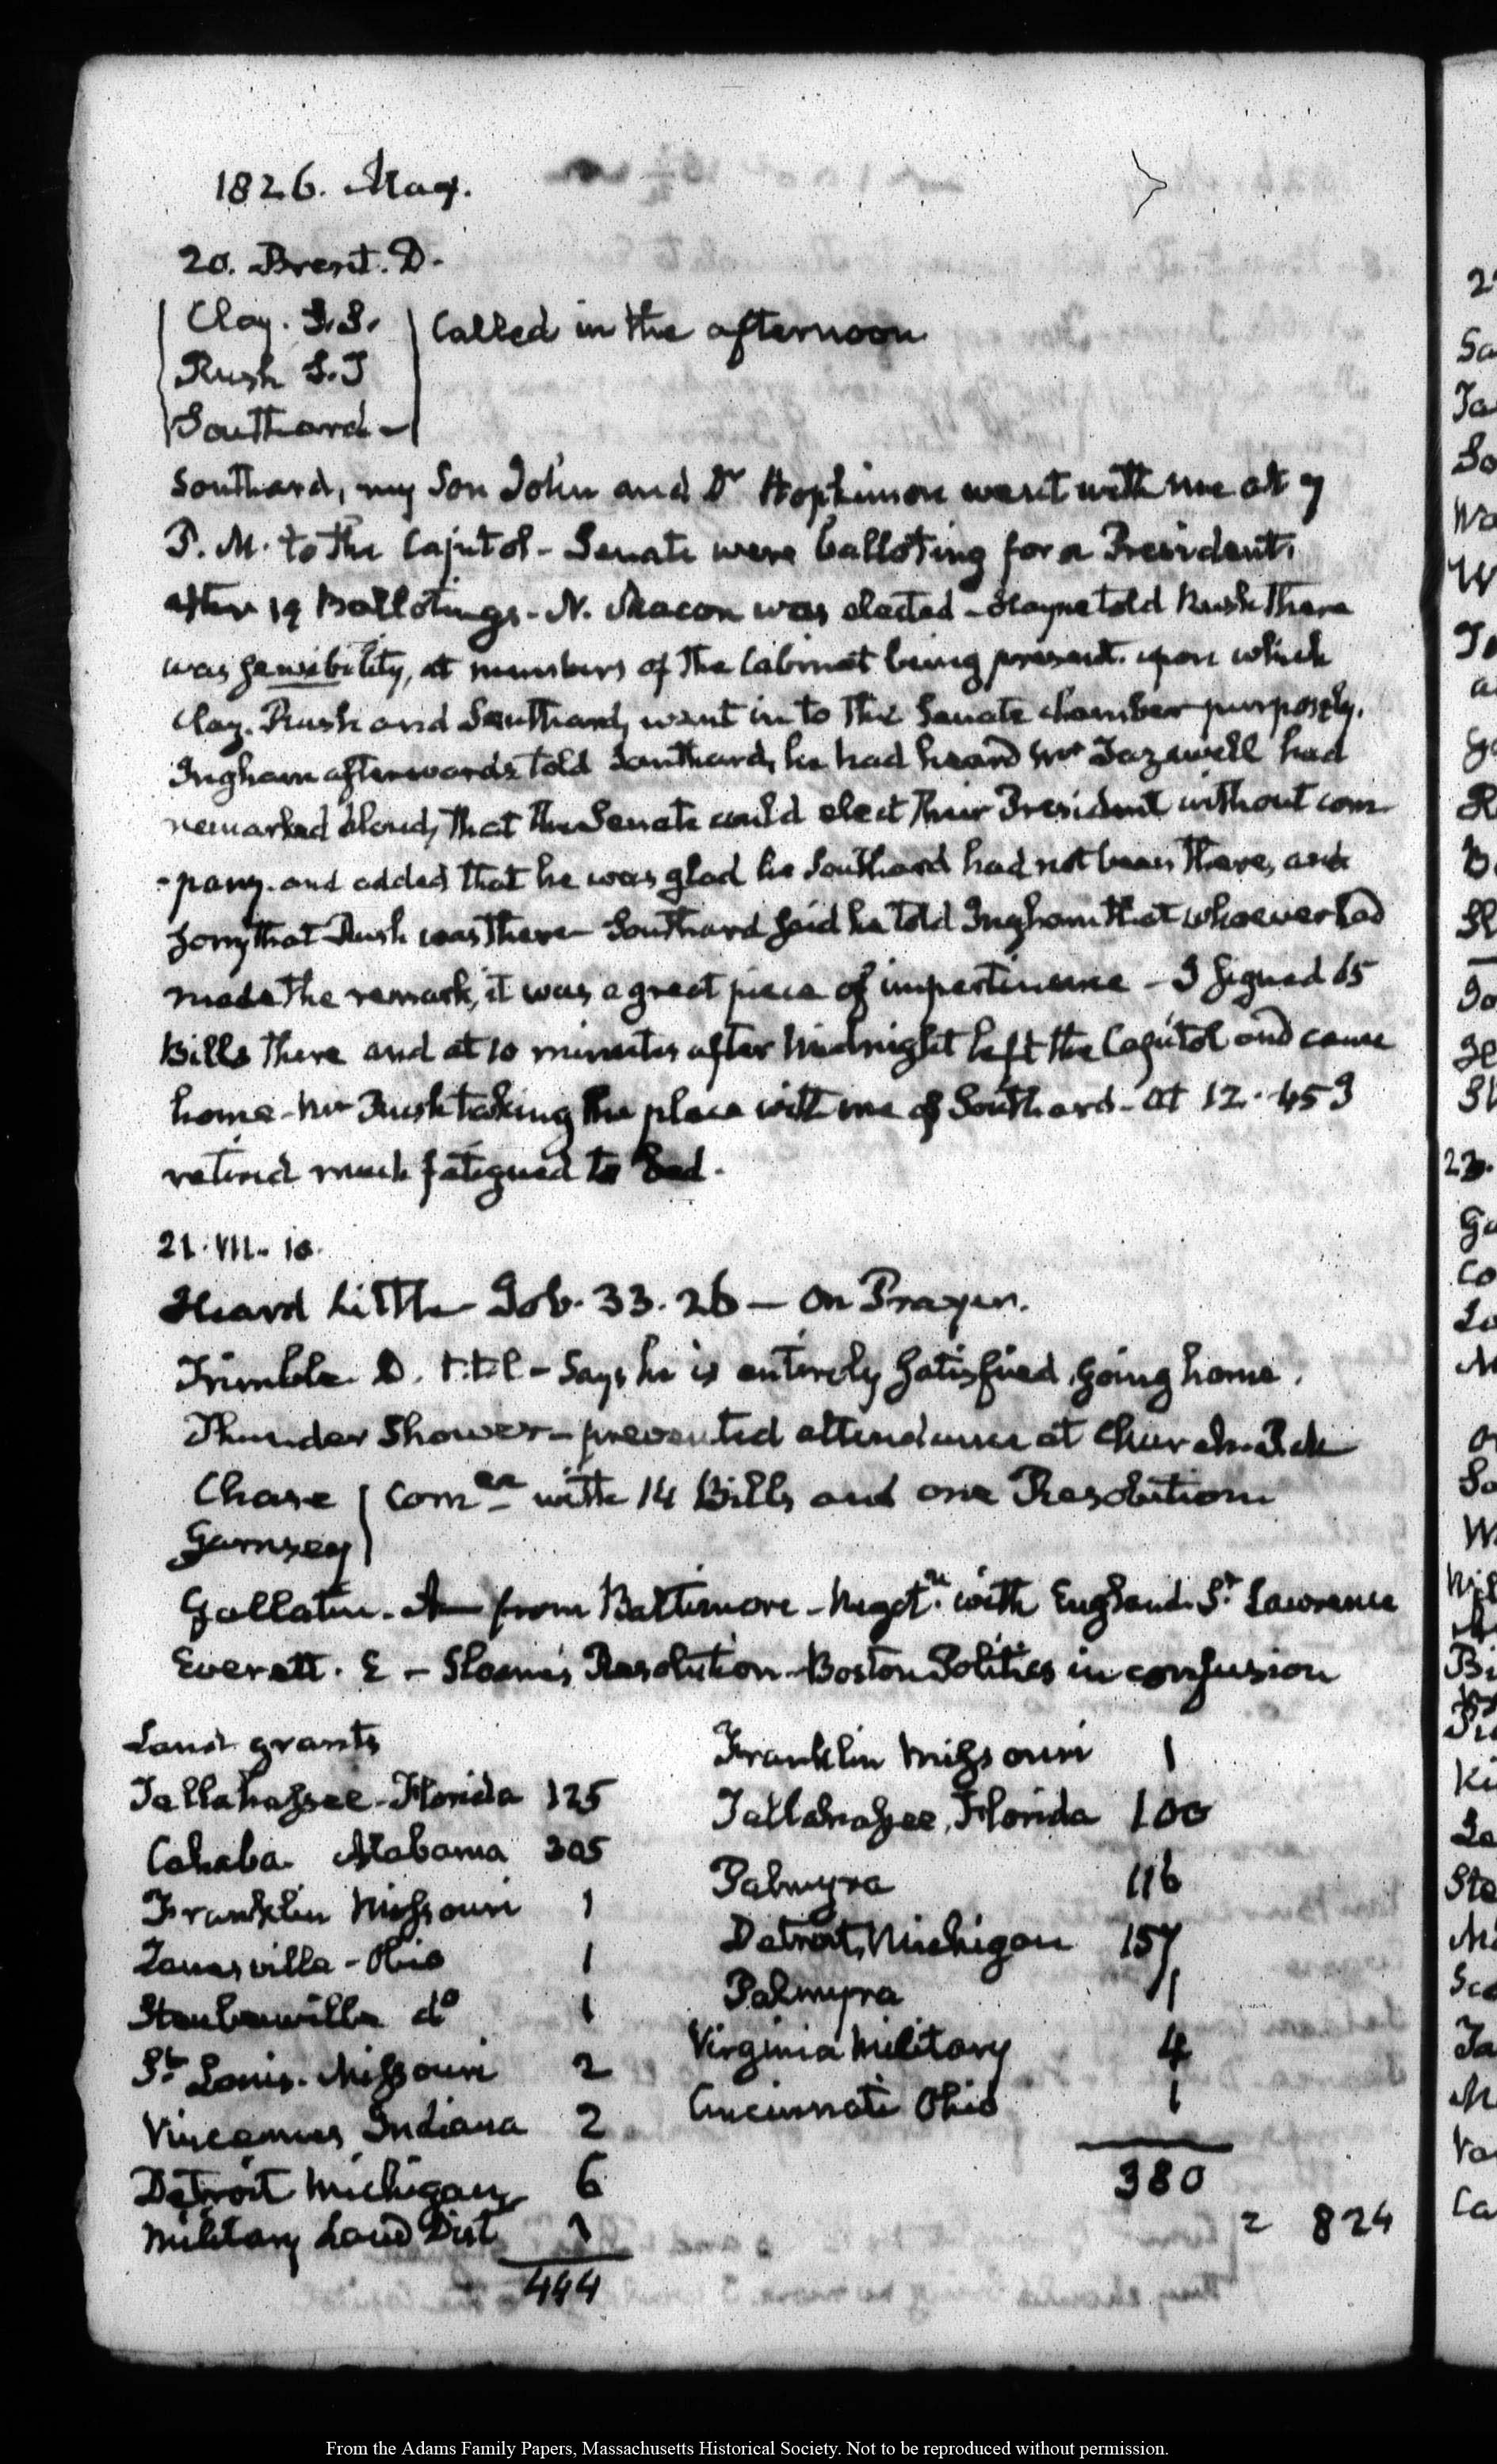 1826. May.
20. Brent. D.
Clay. S.S.
Rush S.T
Southard -
Called in the afternoon
Southard, my Son John and Dr Hopkinson went with me at 7
P. M. to the Capitol - Senate were balloting for a President.
after 19 Ballotings - N. Macon was elected - Hayne told Rush there
was sensibility, at members of the Cabinet being present. upon which
Clay. Rush and Southard, went in to the Senate chamber purposely.
Ingham afterwards told Southard, he had heard Mr Tazewell had
remarked aloud, that the Senate could elect their President without com
-pany. and added that he was glad he Southard had not been there, and
sorry that Rush was there - Southard said he told Ingham that whoever had
made the remark, it was a great piece of impertinence - I signed 65
Bills there and at 10 minutes after Midnight left the Capitol and came
home - Mr Rush taking the place with me of Southard - at 12. 45
retired much fatigued to Bed.
21. VII. 10.
Heard Little Job. 33. 26 - on Prayer.
Trimble D. t.t.l - Says he is entirely satisfied, going home.
Thunder Shower - prevented attendance at Church.
Chase
Garnsey
Comee with 14 Bills and one Resolution
Gallatin. A from Baltimore - Negotn. with England. St. Lawrence
Everett. E - Sloane's Resolution - Boston Politics in confusion
Land grants
Tallahassee - Florida 125
Cahaba. Alabama 305
Franklin Missouri 1
Zanesville - Ohio 1
Steubenville do 1
St. Louis. Missouri 2
Vincennes Indiana 2
Detroit Michigan 6
Military Land Dist 1
444
Franklin Missouri 1
Tallahassee, Florida 100
Palmyra 116
Detroit, Michigan 157
Palmyra 1
Virginia Military 4
Cincinnati Ohio 1
380
= 824
From the Adams Family Papers, Massachusetts Historical Society. Not to be reproduced without permission.